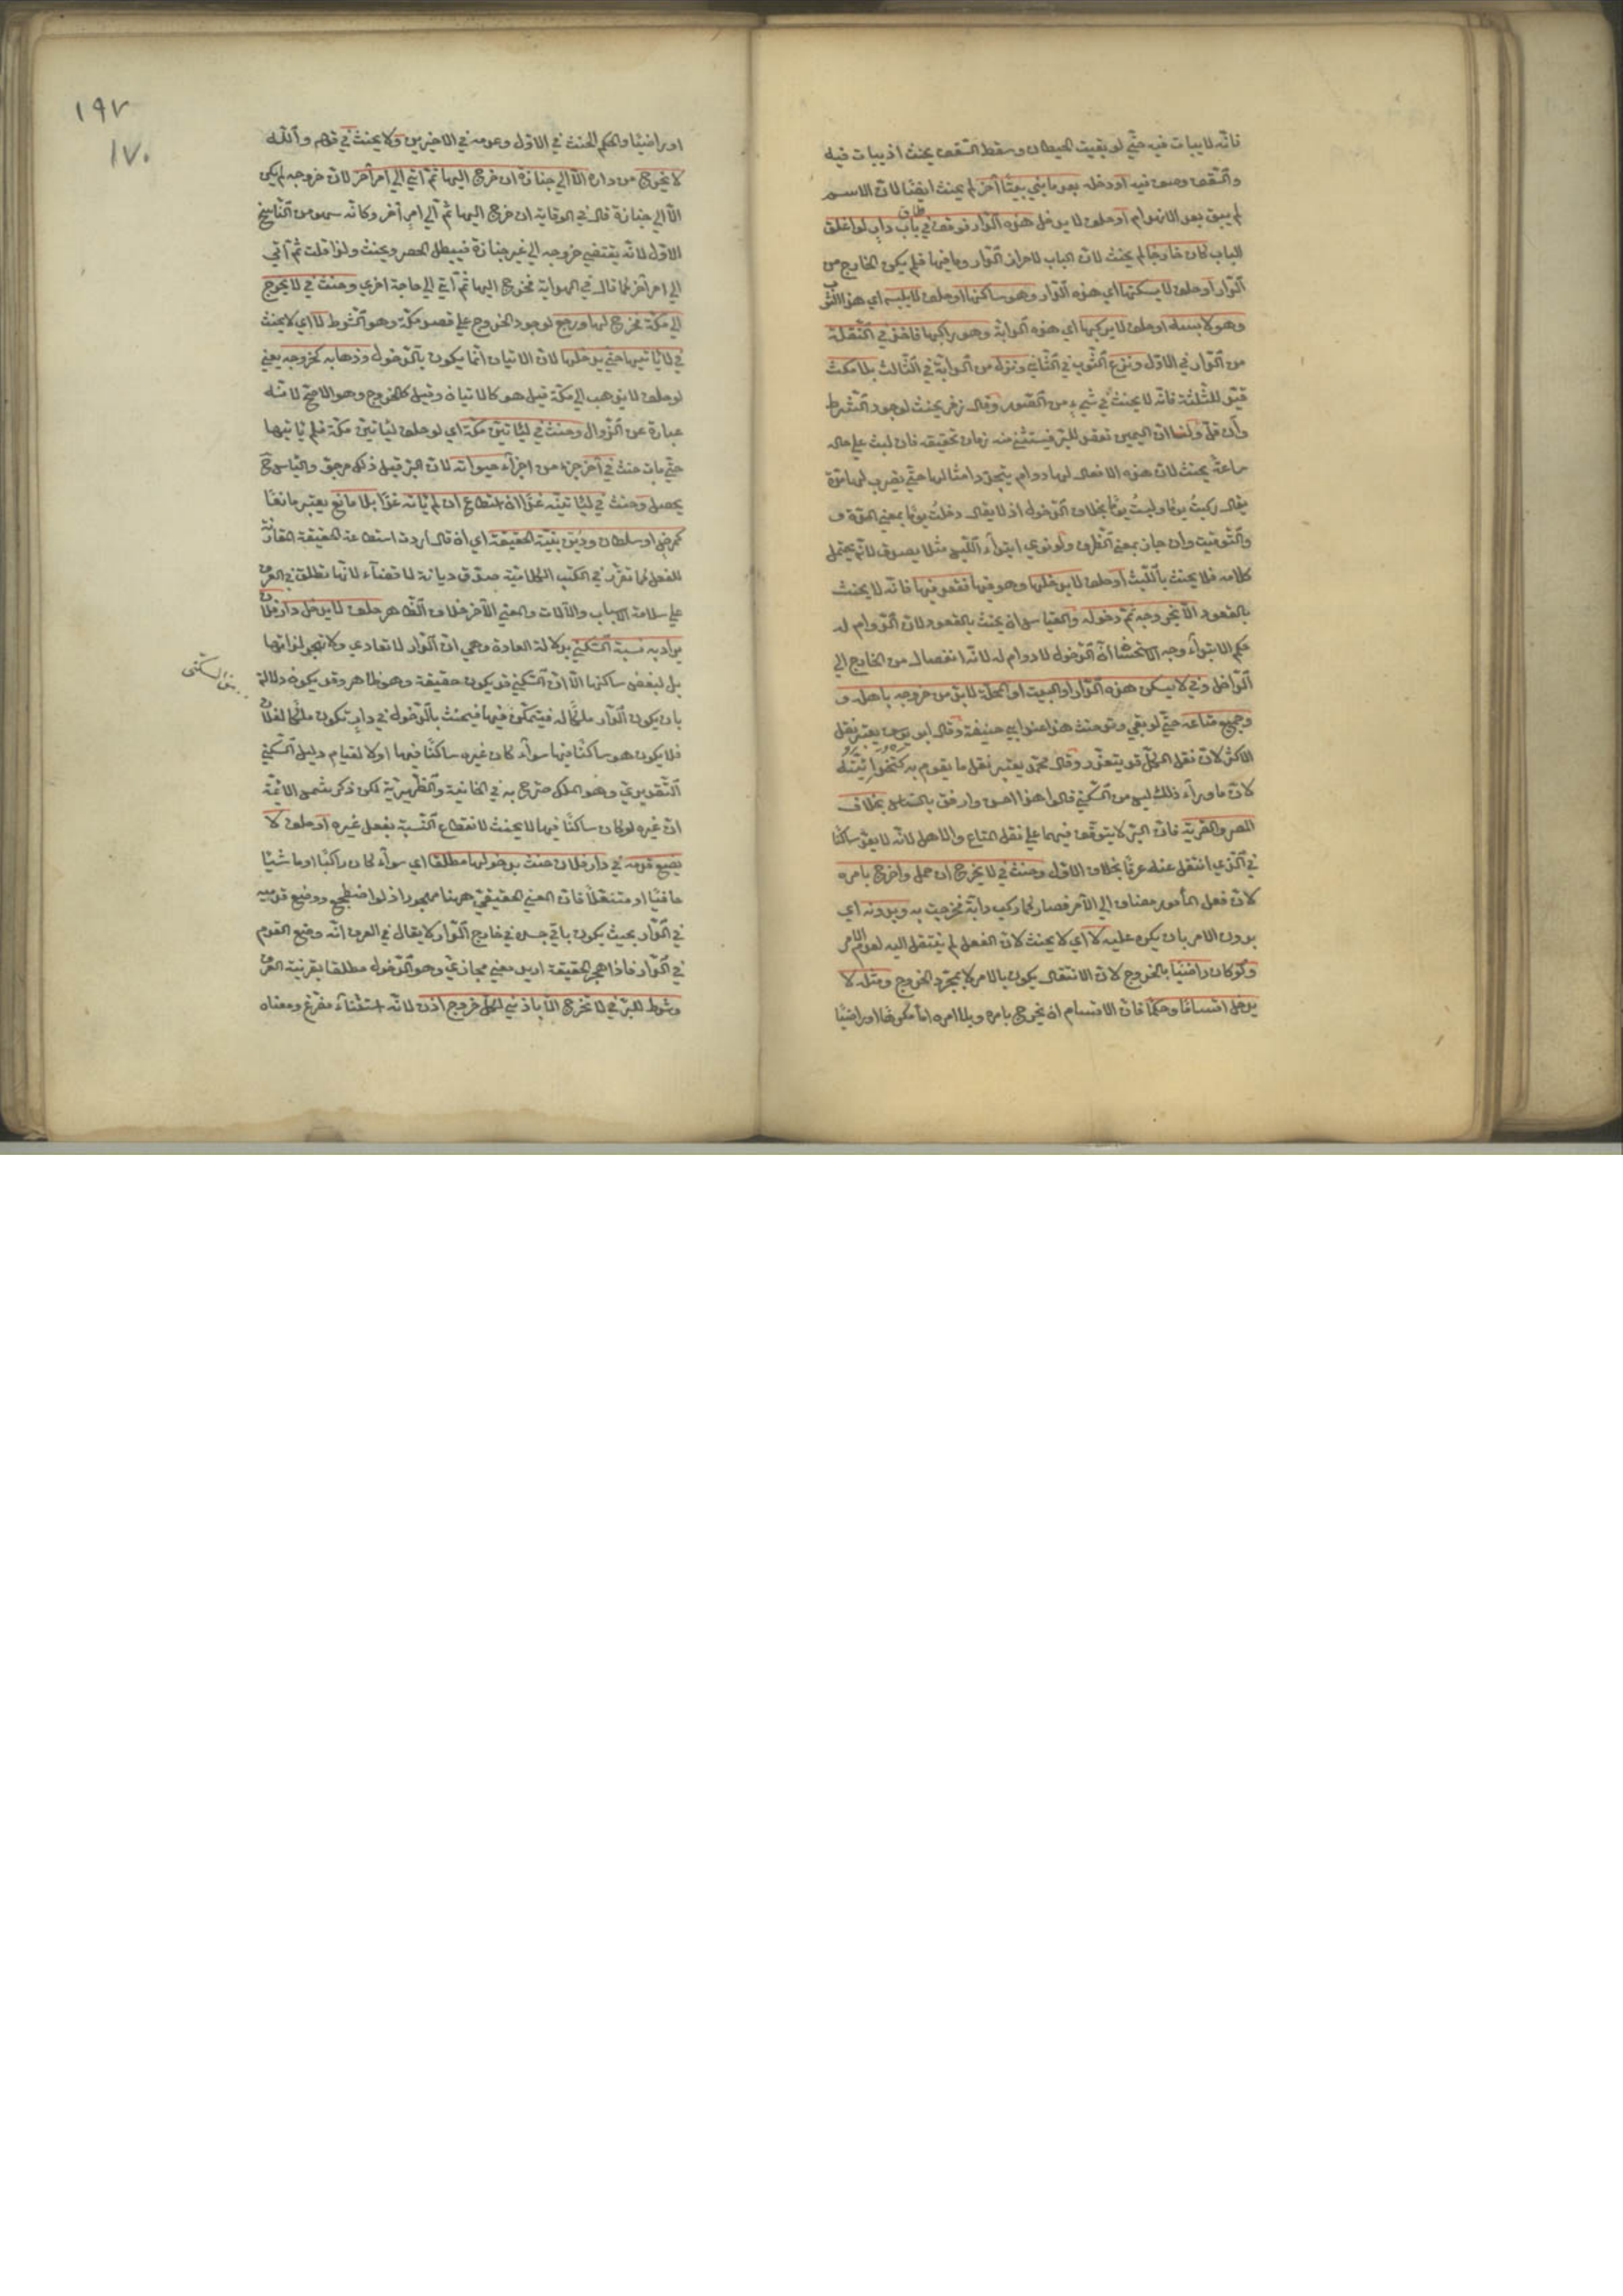 فانّه لا يبات فيه حتّي لو بقيت الحيطان وسقط السّقف يحنث اذ يبات فيه
والسّقف وصف فيه او دخله بعد ما بني بيتًا آخر لم يحنث ايضًا لانّ الاسم
لم يبق بعد الانهدام او حلف لا يدخل هذه الدّار فوقف في طاق باب دار لو اغلق
الباب كان خارجًا لم يحنث لانّ الباب لاحراز الدّار وما فيها فلم يكن الخارج من
الدّار او حلف لا يسكنها اي هذه الدّار وهو ساكنها او حلف لا يلبسه اي هذا الثّوب
وهو لابسه او حلف لا يركبها اي هذه الدّابّة وهو راكبها فاخذ في النّقلة
من الدّار في الاوّل ونزع الثّوب في الثّاني ونزل من الدّابّة في الثّالث بلا مكث
قيّد للثلثة فانّه لا يحنث في شيء من الصّور وقال زفر يحنث لوجود الشّرط
وان قلّ ولنا انّ اليمين تعقد للبرّ فيستثني منه زمان تحقيقه فان لبث علي حاله
ساعة يحنث لانّ هذه الافعال لها دوام يتجدّد امثالها حتّي يضرب لها مدّة
يقال ركبت يومًا ولبست يومًا بخلاف الدّخول اذ لا يقال دخلت يومًا بمعني المدّة و
والتّوقيت وان جاز بمعني الظّرف ولو نوي ابتداء اللّبس مثلا يصدق لانّه يحتمل
كلامه فلا يحنث باللّبث او حلف لا يدخلها وهو فيها فقعد فيها فانّه لا يحنث
بالقعود الّا بخروجه ثمّ دخوله والقياس ان يحنث بالقعود لانّ الدّوام له
حكم الابتداء وجه الاستحسان انّ الدّخول لا دوام له لانّه انفصال من الخارج الي
الدّاخل وفي لا يسكن هذه الدّار او البيت او المحلّة لا بدّ من خروجه باهله و
وجميع متاعه حتّي لو بقي وتد حنث هذا عند ابي حنيفة وقال ابو يوسف يعتبر نقل
الاكثر لانّ نقل الكلّ قد يتعذّر وقال محمّد يعتبر نقل ما يقوم به كتخدائيّته
لانّ ما وراء ذلك ليس من السّكني قالوا هذا احسن وارفق بالنّاس بخلاف
المصر والقرية فانّ البرّ لا يتوقّف فيهما علي نقل المتاع والاهل لانّه لا يعدّ ساكنًا
في الّذي انتقل عنه عرفًا بخلاف الاوّل وحنث في لا يخرج ان حمل واخرج بامره
لانّ فعل المأمور مضاف الي الآمر فصار كما ركب دابّة فخرجت به وبدونه اي
بدون الامر بان يكره عليه لا اي لا يحنث لانّ الفعل لم ينتقل اليه لعدم الامر
ولو كان راضيًا بالخروج لانّ الانتقال يكون بالامر لا بمجرّد الخروج ومثله لا
يدخل اقسامًا وحكمًا فانّ الاقسام ان يخرج بامره وبلا امره امّا مكرهًا او راضيًا
١٩٧
١٧٠
او راضيًا والحكم الحنث في الاوّل وعدمه في الاخيرين ولا يحنث في قوله والله
لا يخرج من داره الّا الي جنازة ان خرج اليها ثمّ اتي الي امر آخر لانّ خروجه لم يكن
الّا الي جنازة قال في الوقاية ان خرج اليها ثمّ الي امر آخر وكانّه سهو من النّاسخ
الاوّل لانّه يقتضي خروجه الي غير جنازة فيبطل الحصر ويحنث ولذا قلت ثمّ اتي
الي امر آخر كما قال في الهداية فخرج اليها ثمّ اتي الي حاجة اخري وحنث في لا يخرج
الي مكّة فخرج لها ورجع لوجود الخروج علي قصد مكّة وهو الشّرط لا اي لا يحنث
في لا يأتيها حتّي يدخلها لانّ الاتيان انّما يكون بالدّخول وذهابه كخروجه يعني
لو حلف لا يذهب الي مكّة قيل هو كالاتيان وقيل كالخروج وهو الاصحّ لانّه
عبارة عن الزّوال وحنث في ليأتينّ مكّة اي لو حلف ليأتينّ مكّة فلم يأتها
حتّي مات حنث في آخر جزء من اجزاء حيوته لانّ البرّ قبل ذلك مرجوّ واليأس ح
يحصل وحنث في ليأتينّه غدًا ان استطاع ان لم يأته غدًا بلا مانع يعتبر مانعًا
كمرض او سلطان وديّن بنيّة الحقيقة اي ان قال اردت استطاعة الحقيقة المقارنة
للفعل كما تقرّر في الكتب الكلاميّة صدّق ديانة لا قضاء لانّها تطلق في العرف
علي سلامة الاسباب والآلات والمعني الآخر خلاف الظّاهر حلف لا يدخل دار فلان
يراد به نسبة السّكني بدلالة العادة وهي انّ الدّار لا تعادي ولا تهجر لذاتها
بل لبغض ساكنها الّا انّ السّكني قد يكون حقيقة وهو ظاهر وقد يكون دلالة
بان يكون الدّار ملكًا له فيتمكّن فيها فيحنث بالدّخول في دار تكون ملكًا لفلان
فلا يكون هو ساكنًا فيها سواء كان غيره ساكنًا فيها او لا لقيام دليل السّكني
التّقديري وهو الملك صرّح به في الخانية والظّهيريّة لكن ذكر شمس الائمّة
انّ غيره لو كان ساكنًا فيها لا يحنث لانقطاع النّسبة بفعل غيره او حلف لا
يضع قدمه في دار فلان حنث بدخولها مطلقا اي سواء كان راكبًا او ماشيًا
حافيًا او متنعّلًا فانّ المعني الحقيقي ههنا مهجور اذ لو اضطجع ووضع قدميه
في الدّار بحيث يكون باقي جسده في خارج الدّار لا يقال في العرف انّه وضع القدم
في الدّار فاذا هجر الحقيقة اريد معني مجازيّ وهو الدّخول مطلقا بقرينة العرف
وشرط للبرّ في لا تخرج الّا باذني لكلّ خروج اذن لانّه استثناء مفرّغ ومعناه